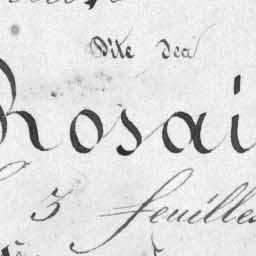 Dite des
Rosai
3 feuilles